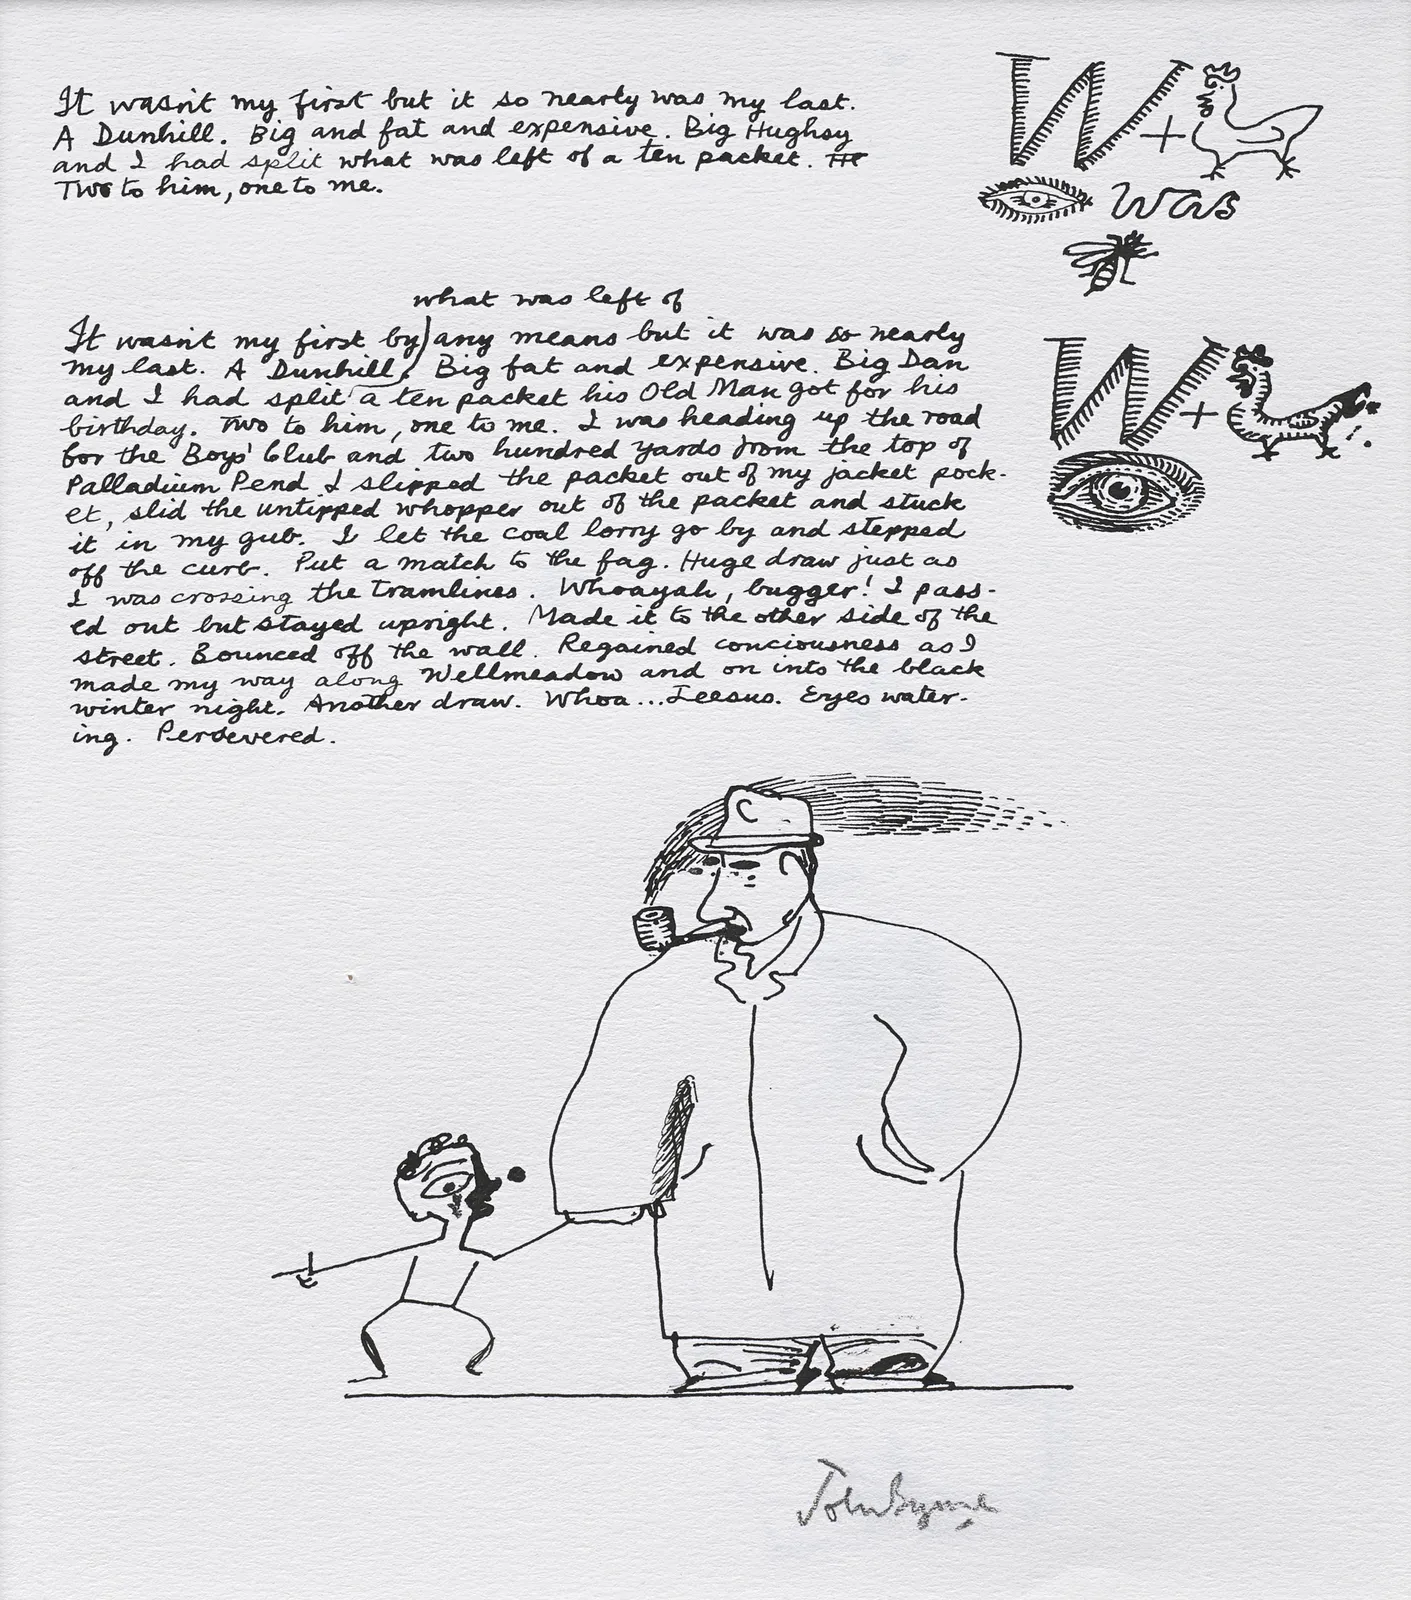 It wasn't my first but it so nearly was my last.
A Dunhill. Big and fat and expensive. Big Hughsy
and I had split what was left of a ten packet. He
Two to him, one to me.
W +
was
what was left of
It wasn't my first by any means but it was so nearly
my last. A Dunhill, Big fat and expensive. Big Dan
and I had split a ten packet his Old Man got for his
birthday. Two to him, one to me. I was heading up the road
for the Boys' Club and two hundred yards from the top of
Palladium Pend I slipped the packet out of my jacket pock-
et, slid the untipped whopper out of the packet and stuck
it in my gub. I let the coal lorry go by and stepped
off the curb. Put a match to the fag. Huge draw just as
I was crossing the tramlines. Whoayah, bugger! I pass-
ed out but stayed upright. Made it to the other side of the
street. Bounced off the wall. Regained conciousness as I
made my way along Wellmeadow and on into the black
winter night. Another draw. Whoa...Jeesus. Eyes water-
ing. Persevered.
W +
John Byrne